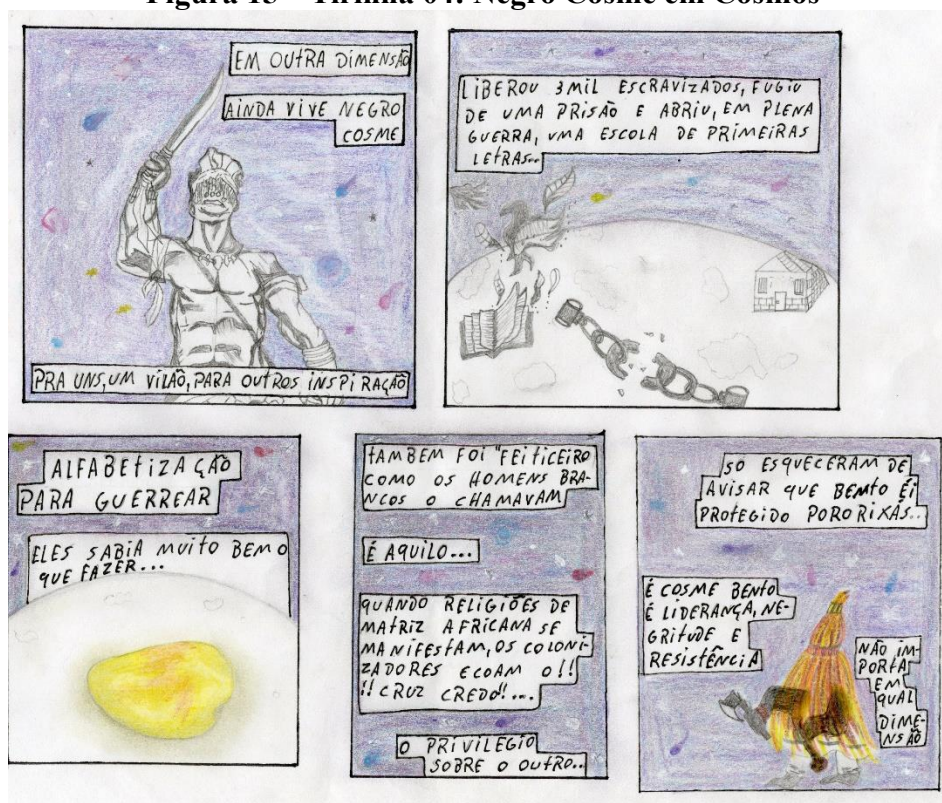 Figura 13 – Tirinha 04: Negro Cosme em Cosmos
EM OUTRA DIMENSÃO
AINDA VIVE NEGRO
COSME
PRA UNS, UM VILÃO, PARA OUTROS INSPIRAÇÃO
LIBEROU 3MIL ESCRAVIZADOS, FUGIU
DE UMA PRISÃO E ABRIU, EM PLENA
GUERRA, UMA ESCOLA DE PRIMEIRAS
LETRAS...
ALFABETIZAÇÃO
PARA GUERREAR
ELES SABIA MUITO BEM O
QUE FAZER...
TAMBEM FOI "FEITICEIRO
COMO OS HOMENS BRA-
NCOS O CHAMAVAM
É AQUILO...
QUANDO RELIGIÕES DE
MATRIZ AFRICANA SE
MANIFESTAM, OS COLONI-
ZADORES ECOAM O!!
!!CRUZ CREDO!!...
O PRIVILEGIO
SOBRE O OUTRO...
SO ESQUECERAM DE
AVISAR QUE BENTO É
PROTEGIDO POR ORIXAS...
É COSME BENTO
É LIDERANÇA, NE-
GRITUDE E
RESISTÊNCIA
NÃO IM-
PORTA
EM
QUAL
DIME-
NSÃO